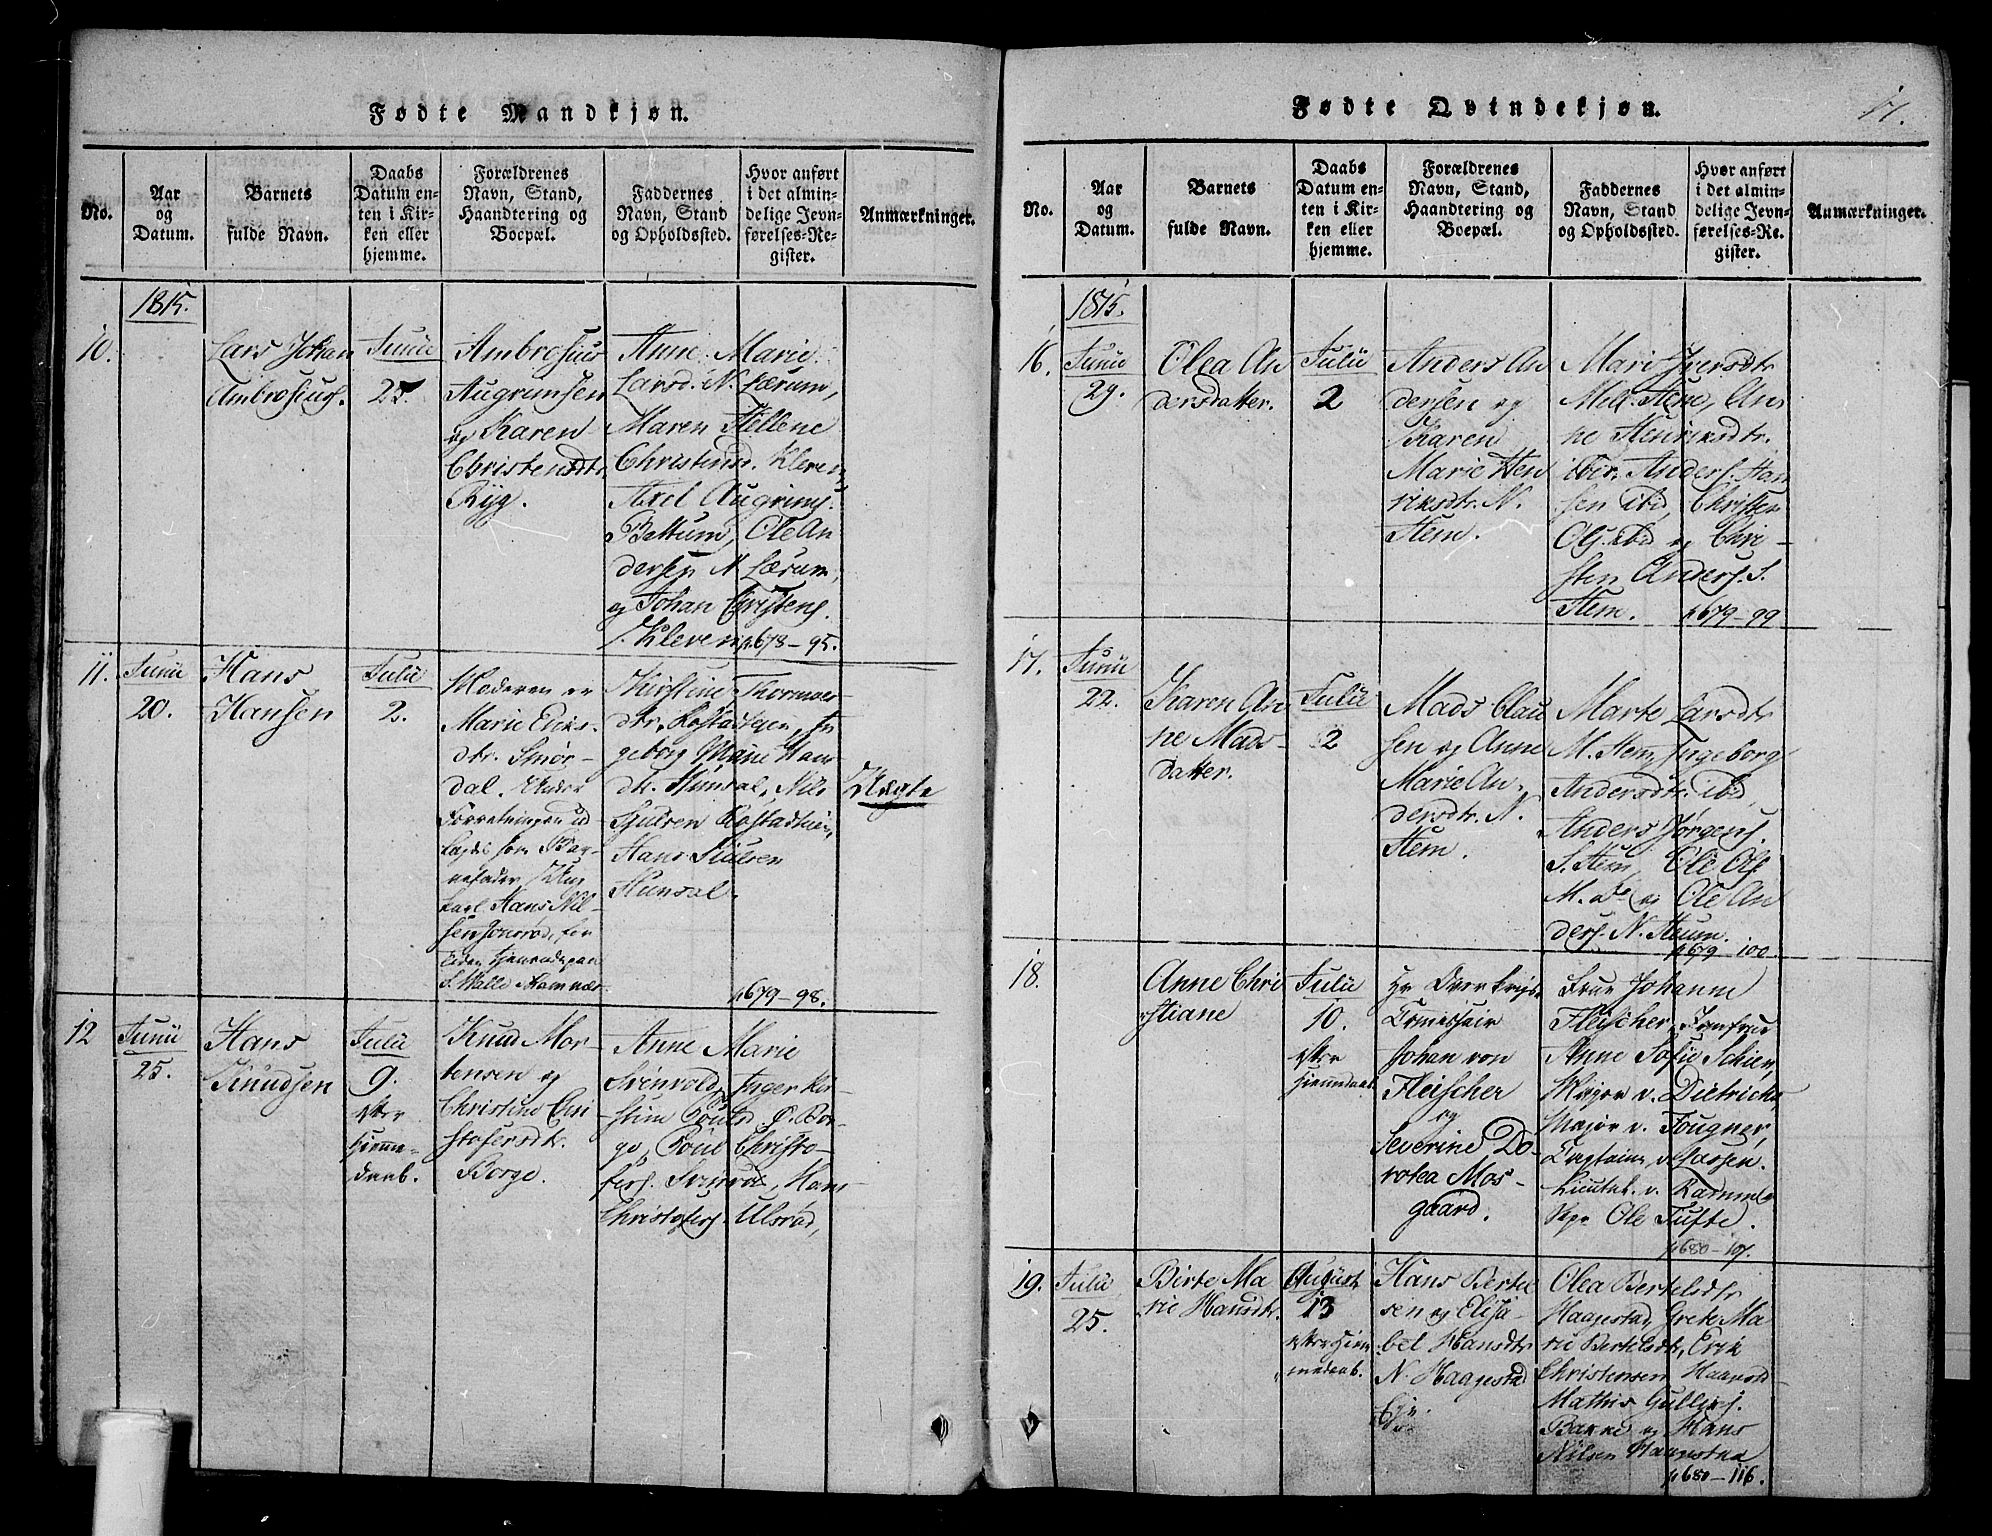 Fødte Mandkjøn.
No.
Aar
og
Datum.
Barnets
fulde Navn.
Daabs
Datum en-
ten i Kir-
ken eller
hjemme.
Forældrenes
Navn, Stand,
Haandtering og
Boepæl.
Faddernes
Navn, Stand
og Opholdssted.
Hvor anført
i det almin-
delige Jevn-
førelses-Re-
gister.
Anmærkninger.
1815.
10.
Lars Johan
Ambrosius.
Junii
25
Ambrosius
Augrimsen
og Karen
Christensdtr.
Ryg.
Anne Marie
Larsd. N. Lærum,
Maren Hellene
Christensd. Kleven,
Axel Augrims.
Bettum, Ole An
dersen N. Lærum,
og Johan Christens.
Kleven
678-95.
11.
Junii
20.
Hans
Hansen
Julii
2.
Moderen er
Marie Eriks-
dtr. Smør-
dal.
Hans Nil-
sen
Kirstine
geborg Marie Han
dtr.
Hans
Uægte
679-98.
12
Junii
25.
Hans
Knudsen
Julii
9.
efter
hjemme-
daab.
Knud Mor-
tensen og
Christine Chri
stofersdtr.
Borge.
Anne Marie
Inger Kir-
stine Pouls. Ø. Bor-
ge, Poul Christo-
fers. Hans
Christofers. Ulsrød,
Fødte Qvindekjøn.
17.
No.
Aar
og
Datum.
Barnets
fulde Navn.
Daabs
Datum en-
ten i Kir-
ken eller
hjemme.
Forældrenes
Navn, Stand,
Haandtering og
Boepæl.
Faddernes
Navn, Stand
og Opholdssted.
Hvor anført
i det almin-
delige Jevn-
førelses-Re-
gister.
Anmærkninger.
1815.
16.
Junii
29.
Olea An
dersdatter.
Julii
2
Anders An
dersen og
Karen
Marie Hen
riksdtr. N.
Hem.
Mari Iversdtr
Mel. Hem, An
ne Henriksdtr.
ibid. Anders Han
sen ibid, Christen
Ols. ibid og Chri-
sten Anders. S.
Hem.
679-99
17.
Junii
22.
Karen An
ne Mads-
datter.
Julii
2
Mads Clau
sen og Anne
Marie An-
dersdtr. N.
Hem.
Marte Larsdtr
M. Hem, Ingeborg
Andersdtr. ibid,
Anders Jørgens.
S. Hem, Ole Ols.
M. do og Ole An
ders. N. Hem.
679-100.
18.
Anne Chri
stiane
Julii
10.
efter
hjemmedaab.
Hr Over Krigs-
Johan von
Fleischer
og
Severine Do-
rotea Mos-
gaard.
Frue Johanne
Fleischer, Jomfrue
Anne Sofie Schien,
Major v. Dietrichs,
Major v. Fougner,
Captain v. Lassen.
Lieutnt. v.
Ole Tufte.
680-107.
19.
Julii
25.
Birte Ma
rie Hansdtr.
August
13
efter hjem
medaab.
Hans Bertel
sen og Elisa-
bet Hansdtr
N. Haagestad
Eje.
Olea Bertelsdtr
Haagestad, Grete Ma
rie Bertelsdtr, Erik
Christensen Haavold
Mathis Gullics.
Bakke og Hans
Nilsen Haagestad
680-116.